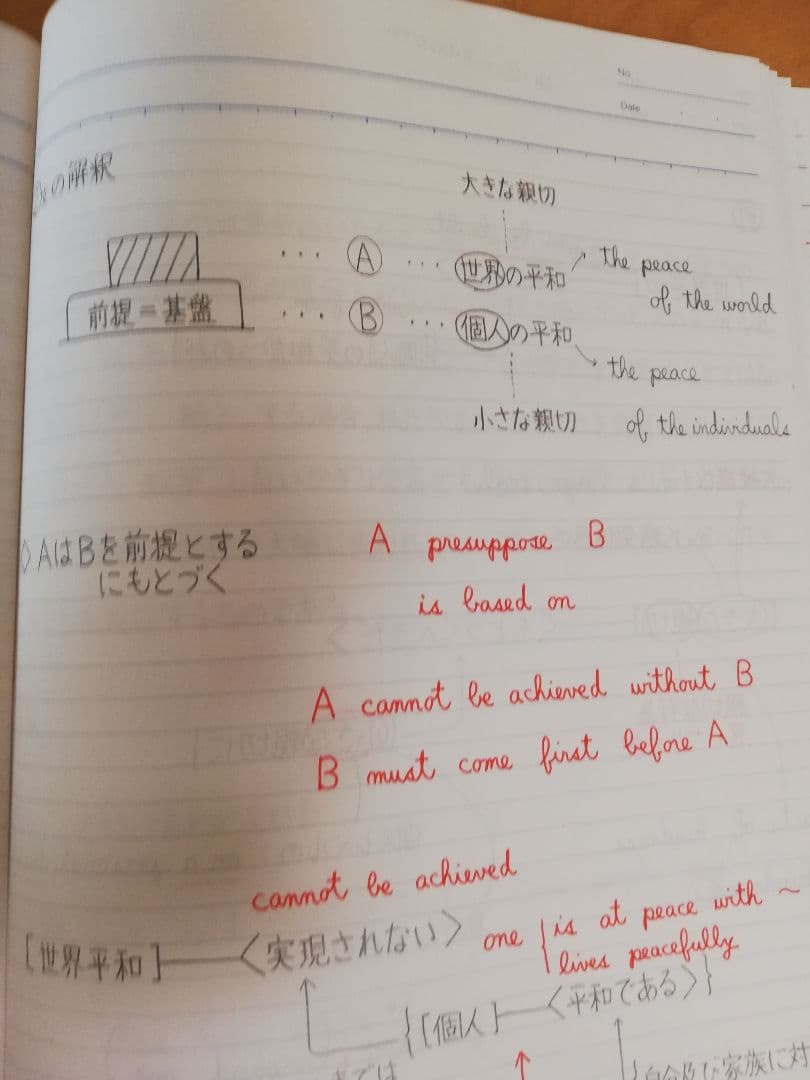 No.
Date
の解釈
大きな親切
... A ... 世界の平和 the peace
of the world
前提=基盤 ... B ... 個人の平和
the peace
小さな親切 of the individuals
AはBを前提とする A presuppose B
にもとづく is based on
A cannot be achieved without B
B must come first before A
cannot be achieved
[世界平和]—〈実現されない〉 one { is at peace with ~
lives peacefully
{[個人]—〈平和である〉}
では
家族に対